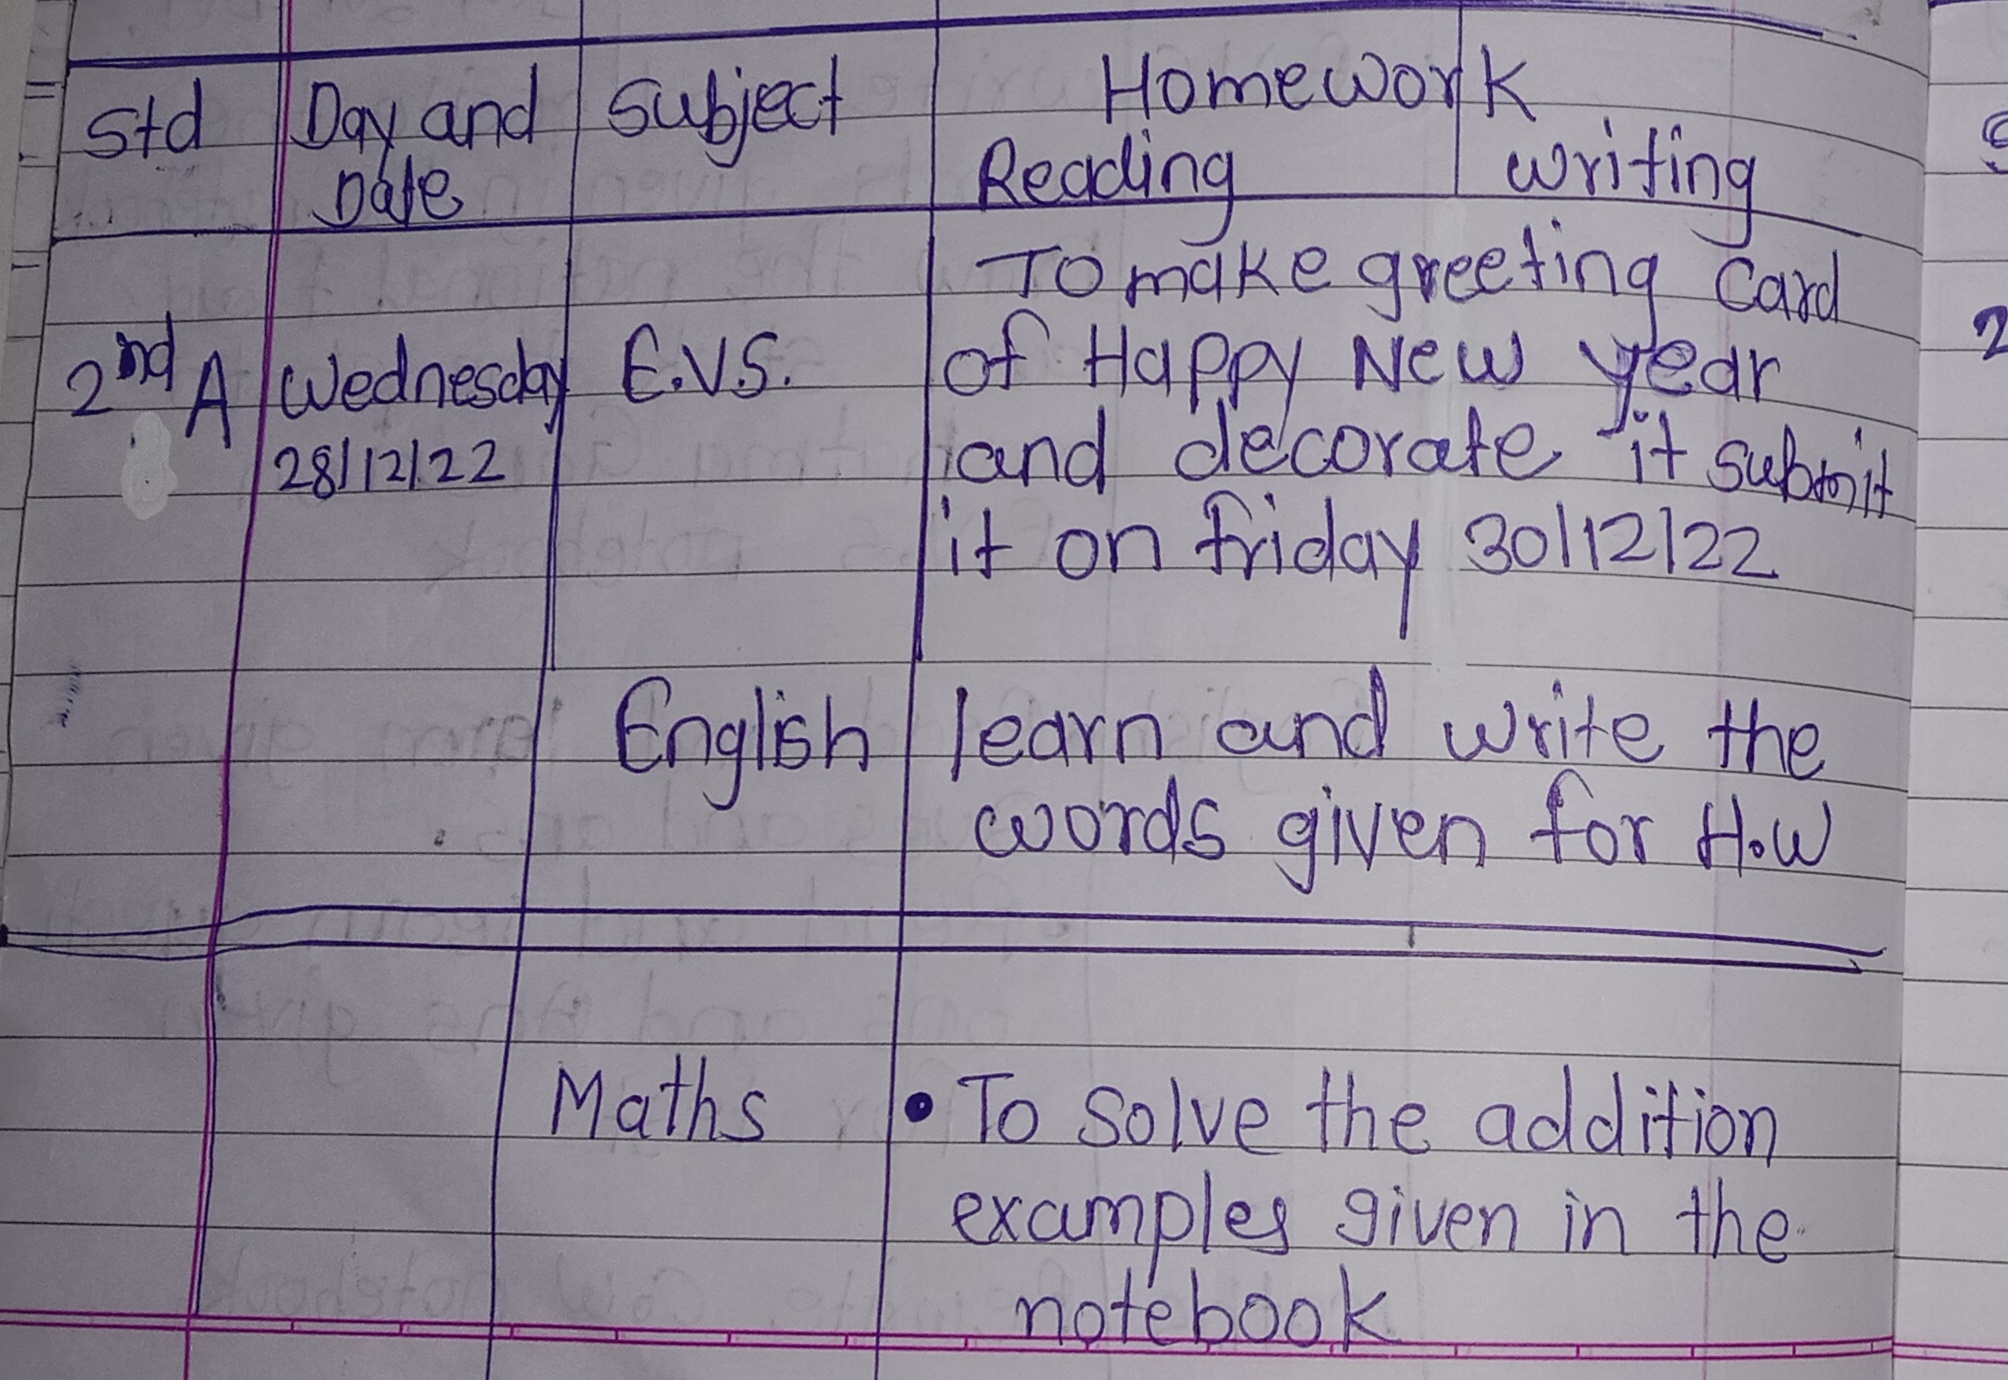 Std Day and Subject Homework
Date Reading writing
To make greeting Card
2nd A Wednesday E.V.S. of Happy New year
28/12/22 and decorate it submit
it on friday 30/12/22
English learn and write the
words given for H.W
Maths • To solve the addition
examples given in the
notebook
2